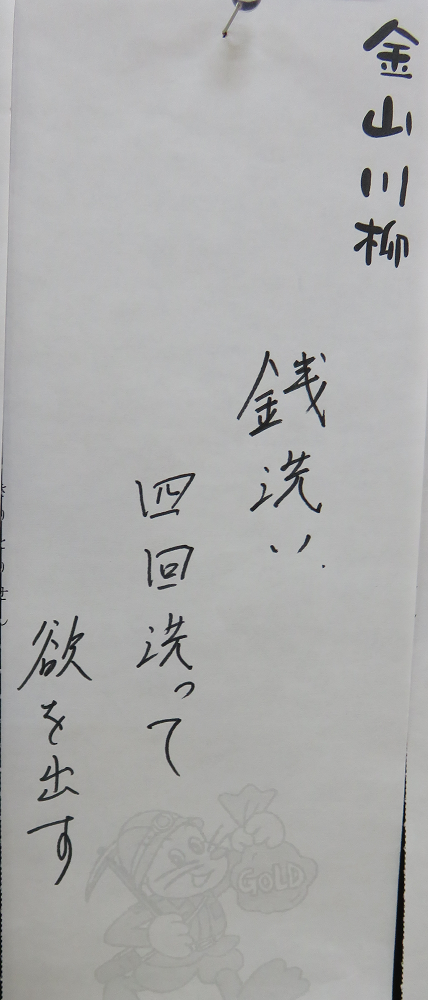 金山川柳
銭洗い
四回洗って
欲を出す
GOLD